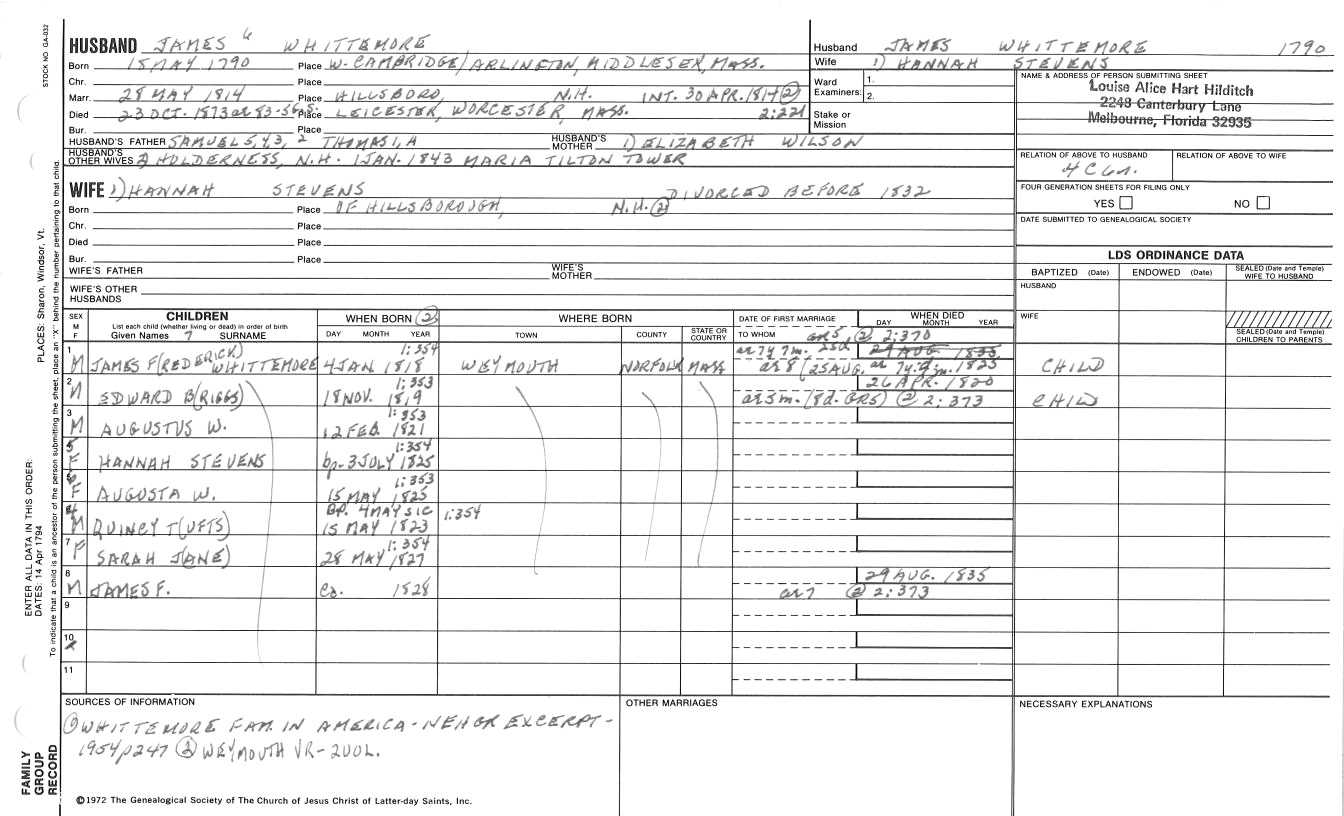 STOCK NO. GA-032
HUSBAND JAMES 6 WHITTEMORE
Born 15 MAY 1790 Place W. CAMBRIDGE/ARLINGTON, MIDDLESEX, MASS.
Chr. Place
Marr. 28 MAY 1814 Place HILLSBORO, N.H. INT. 30 APR. 1814 (2)
Died 23 OCT. 1873 ae 83-5-8. Place LEICESTER, WORCESTER, MASS. 2:221
Bur. Place
HUSBAND'S FATHER SAMUEL 5,4,3,2 THOMAS 1,A HUSBAND'S MOTHER 1) ELIZABETH WILSON
HUSBAND'S OTHER WIVES 2) HOLDERNESS, N.H. 1 JAN. 1843 MARIA TILTON TOWER
WIFE 1) HANNAH STEVENS DIVORCED BEFORE 1832
Born Place OF HILLSBOROUGH, N.H. (2)
Chr. Place
Died Place
Bur. Place
WIFE'S FATHER WIFE'S MOTHER
WIFE'S OTHER HUSBANDS
Husband JAMES WHITTEMORE 1790
Wife 1) HANNAH STEVENS
Ward Examiners: 1. 2.
Stake or Mission
NAME & ADDRESS OF PERSON SUBMITTING SHEET
Louise Alice Hart Hilditch
2248 Canterbury Lane
Melbourne, Florida 32935
RELATION OF ABOVE TO HUSBAND RELATION OF ABOVE TO WIFE
4C6r.
FOUR GENERATION SHEETS FOR FILING ONLY
YES NO
DATE SUBMITTED TO GENEALOGICAL SOCIETY
LDS ORDINANCE DATA
BAPTIZED (Date) ENDOWED (Date) SEALED (Date and Temple) WIFE TO HUSBAND
HUSBAND
WIFE
SEALED (Date and Temple) CHILDREN TO PARENTS
SEX M F
CHILDREN
List each child (whether living or dead) in order of birth
Given Names 7 SURNAME
WHEN BORN (2)
DAY MONTH YEAR
WHERE BORN
TOWN COUNTY STATE OR COUNTRY
DATE OF FIRST MARRIAGE
TO WHOM
WHEN DIED
DAY MONTH YEAR
GR5 (2) 2:370
1 M JAMES F(REDERICK) WHITTEMORE 1:354 4 JAN 1818 WEYMOUTH NORFOLK MASS ae 7y 7m. 25d 29 AUG. 1835
ae 8 (25 AUG. ae 7y. 9m. 1825 CHILD
2 M EDWARD B(RIGGS) 1:353 18 NOV. 1819 26 APR. 1820
ae 5m. (8d. GR5) (2) 2:373 CHILD
3 M AUGUSTUS W. 1:353 12 FEB. 1821
5 F HANNAH STEVENS 1:354 bp. 3 JULY 1825
6 F AUGUSTA W. 1:353 15 MAY 1825
4 M QUINCY T(UFTS) BP. 4 MAY SIC 1:354 15 MAY 1823
7 F SARAH J(ANE) 1:354 28 MAY 1827
8 M JAMES F. Ca. 1828 29 AUG. 1835
ae 7 (2) 2:373
9
10 X
11
SOURCES OF INFORMATION
(1) WHITTEMORE FAM. IN AMERICA - NEHGR EXCERPT -
1954 p247 (2) WEYMOUTH VR - 2 VOL.
OTHER MARRIAGES
NECESSARY EXPLANATIONS
©1972 The Genealogical Society of The Church of Jesus Christ of Latter-day Saints, Inc.
ENTER ALL DATA IN THIS ORDER:
DATES: 14 Apr 1794 PLACES: Sharon, Windsor, Vt.
To indicate that a child is an ancestor of the person submitting the sheet, place an "X" behind the number pertaining to that child.
FAMILY GROUP RECORD